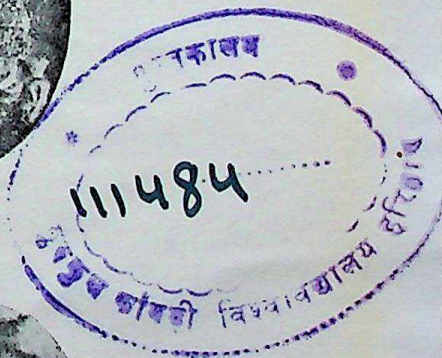 पुस्तकालय
111484
गुरुकुल कांगड़ी विश्वविद्यालय हरिद्वार